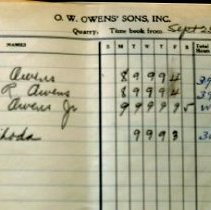 O. W. OWENS' SONS, INC.
Quarry. Time book from Sept 2
NAMES S M T W T F S
Owens 8 9 9 9 4 39
Owens 8 9 9 9 4 39
Owens Jr 9 9 9 9 9 5
9 9 9 3